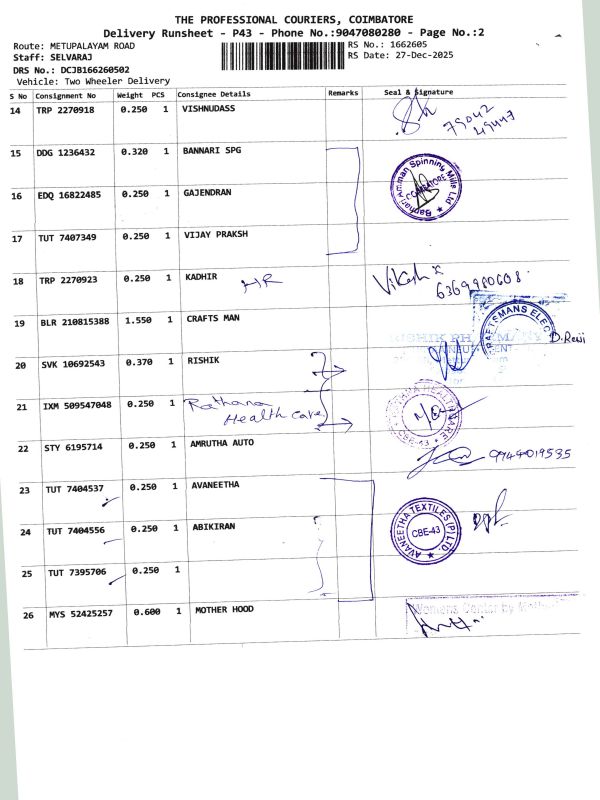 THE PROFESSIONAL COURIERS, COIMBATORE
Delivery Runsheet - P43 - Phone No.:9047080280 - Page No.:2
Route: METUPALAYAM ROAD RS No.: 1662605
Staff: SELVARAJ RS Date: 27-Dec-2025
DRS No.: DCJB166260502
Vehicle: Two Wheeler Delivery
S No Consignment No Weight PCS Consignee Details Remarks Seal & Signature
14 TRP 2270918 0.250 1 VISHNUDASS
79042
49447
15 DDG 1236432 0.320 1 BANNARI SPG
Bannari Amman Spinning Mills Ltd
COIMBATORE
16 EDQ 16822485 0.250 1 GAJENDRAN
17 TUT 7407349 0.250 1 VIJAY PRAKSH
18 TRP 2270923 0.250 1 KADHIR HR
6369980608
19 BLR 210815388 1.550 1 CRAFTS MAN
CRAFTSMANS ELEC
20 SVK 10692543 0.370 1 RISHIK
21 IXM 509547048 0.250 1 Rathana
Health care
CBE-43
22 STY 6195714 0.250 1 AMRUTHA AUTO 9944019535
23 TUT 7404537 0.250 1 AVANEETHA
AVANEETHA TEXTILES (P) LTD.
CBE-43
24 TUT 7404556 0.250 1 ABIKIRAN
25 TUT 7395706 0.250 1
26 MYS 52425257 0.600 1 MOTHER HOOD
Womens Center by